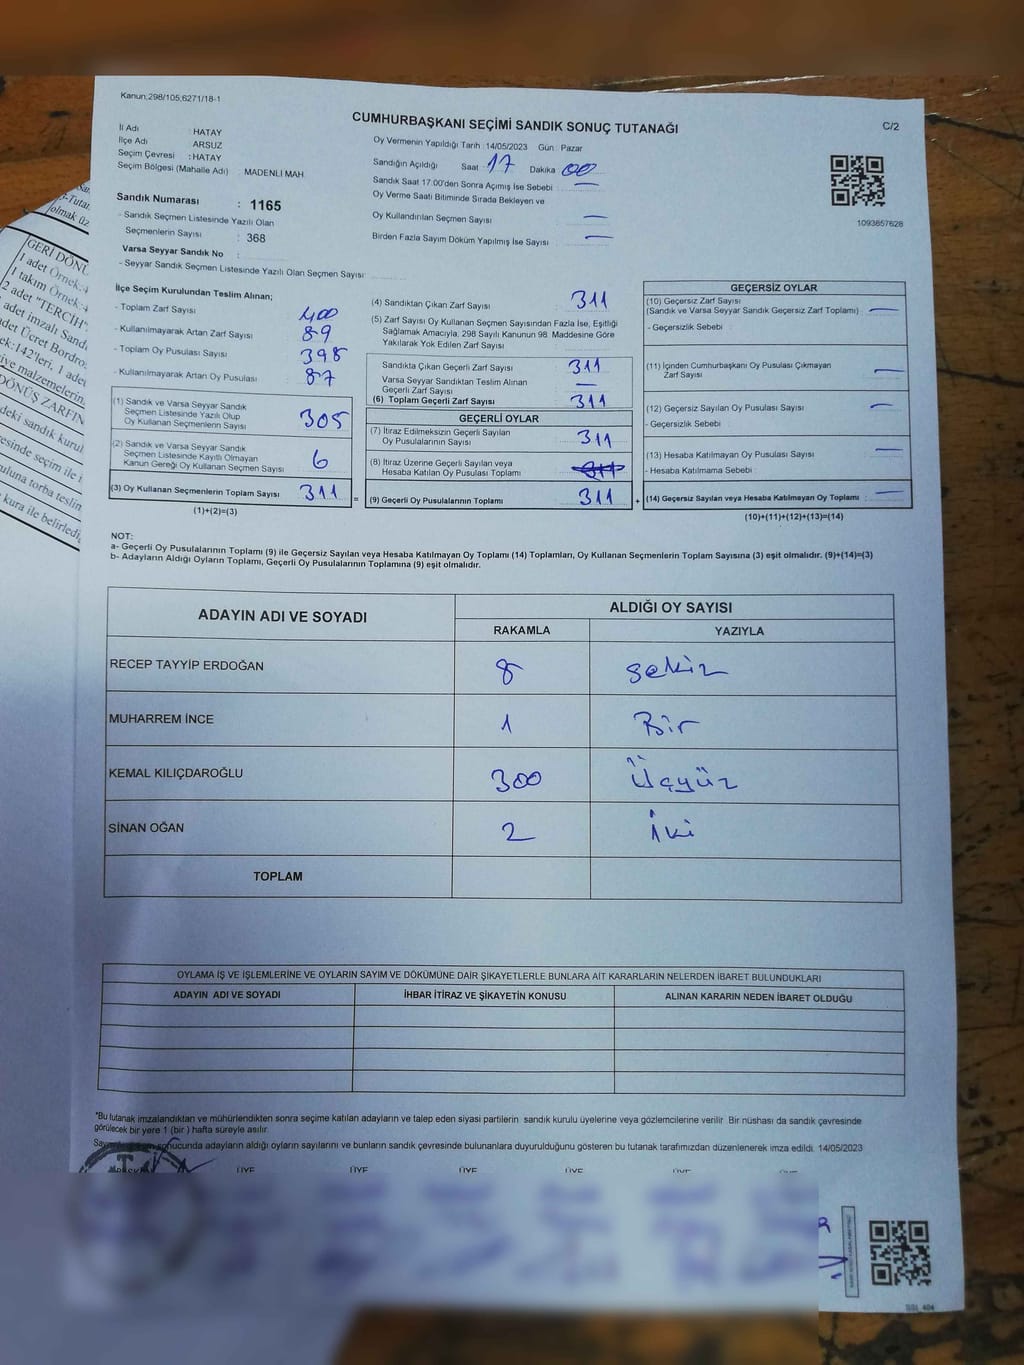 Kanun:298/105,6271/18-1
CUMHURBAŞKANI SEÇİMİ SANDIK SONUÇ TUTANAĞI
C/2
İl Adı : HATAY
İlçe Adı ARSUZ
Seçim Çevresi : HATAY
Seçim Bölgesi (Mahalle Adı) : MADENLİ MAH.
Sandık Numarası : 1165
- Sandık Seçmen Listesinde Yazılı Olan
Seçmenlerin Sayısı : 368
Varsa Seyyar Sandık No :
- Seyyar Sandık Seçmen Listesinde Yazılı Olan Seçmen Sayısı
Oy Vermenin Yapıldığı Tarih : 14/05/2023 Gün : Pazar
Sandığın Açıldığı Saat 17 Dakika 00
Sandık Saat 17:00'den Sonra Açımış İse Sebebi : —
Oy Verme Saati Bitiminde Sırada Bekleyen ve
Oy Kullandırılan Seçmen Sayısı —
Birden Fazla Sayım Döküm Yapılmış İse Sayısı —
1093657628
İlçe Seçim Kurulundan Teslim Alınan;
- Toplam Zarf Sayısı 400
- Kullanılmayarak Artan Zarf Sayısı 89
- Toplam Oy Pusulası Sayısı 398
- Kullanılmayarak Artan Oy Pusulası 87
(1) Sandık ve Varsa Seyyar Sandık
Seçmen Listesinde Yazılı Olup
Oy Kullanan Seçmenlerin Sayısı 305
(2) Sandık ve Varsa Seyyar Sandık
Seçmen Listesinde Kayıtlı Olmayan
Kanun Gereği Oy Kullanan Seçmen Sayısı 6
(3) Oy Kullanan Seçmenlerin Toplam Sayısı 311 =
(1)+(2)=(3)
(4) Sandıktan Çıkan Zarf Sayısı 311
(5) Zarf Sayısı Oy Kullanan Seçmen Sayısından Fazla İse, Eşitliği
Sağlamak Amacıyla, 298 Sayılı Kanunun 98. Maddesine Göre
Yakılarak Yok Edilen Zarf Sayısı
Sandıkta Çıkan Geçerli Zarf Sayısı 311
Varsa Seyyar Sandıktan Teslim Alınan
Geçerli Zarf Sayısı —
(6) Toplam Geçerli Zarf Sayısı 311
GEÇERLİ OYLAR
(7) İtiraz Edilmeksizin Geçerli Sayılan
Oy Pusulalarının Sayısı 311
(8) İtiraz Üzerine Geçerli Sayılan veya
Hesaba Katılan Oy Pusulası Toplamı 311
(9) Geçerli Oy Pusulalarının Toplamı 311 +
GEÇERSİZ OYLAR
(10) Geçersiz Zarf Sayısı
(Sandık ve Varsa Seyyar Sandık Geçersiz Zarf Toplamı) —
- Geçersizlik Sebebi :
(11) İçinden Cumhurbaşkanı Oy Pusulası Çıkmayan
Zarf Sayısı —
(12) Geçersiz Sayılan Oy Pusulası Sayısı —
- Geçersizlik Sebebi :
(13) Hesaba Katılmayan Oy Pusulası Sayısı —
- Hesaba Katılmama Sebebi :
(14) Geçersiz Sayılan veya Hesaba Katılmayan Oy Toplamı : —
(10)+(11)+(12)+(13)=(14)
NOT:
a- Geçerli Oy Pusulalarının Toplamı (9) ile Geçersiz Sayılan veya Hesaba Katılmayan Oy Toplamı (14) Toplamları, Oy Kullanan Seçmenlerin Toplam Sayısına (3) eşit olmalıdır. (9)+(14)=(3)
b- Adayların Aldığı Oyların Toplamı, Geçerli Oy Pusulalarının Toplamına (9) eşit olmalıdır.
ADAYIN ADI VE SOYADI ALDIĞI OY SAYISI
RAKAMLA YAZIYLA
RECEP TAYYİP ERDOĞAN 8 sekiz
MUHARREM İNCE 1 Bir
KEMAL KILIÇDAROĞLU 300 Üçyüz
SİNAN OĞAN 2 İki
TOPLAM
OYLAMA İŞ VE İŞLEMLERİNE VE OYLARIN SAYIM VE DÖKÜMÜNE DAİR ŞİKAYETLERLE BUNLARA AİT KARARLARIN NELERDEN İBARET BULUNDUKLARI
ADAYIN ADI VE SOYADI İHBAR İTİRAZ VE ŞİKAYETİN KONUSU ALINAN KARARIN NEDEN İBARET OLDUĞU
*Bu tutanak imzalandıktan ve mühürlendikten sonra seçime katılan adayların ve talep eden siyasi partilerin sandık kurulu üyelerine veya gözlemcilerine verilir. Bir nüshası da sandık çevresinde
görülecek bir yere 1 (bir) hafta süreyle asılır.
sonucunda adayların aldığı oyların sayılarını ve bunların sandık çevresinde bulunanlara duyurulduğunu gösteren bu tutanak tarafımızdan düzenlenerek imza edildi. 14/05/2023
ÜYE ÜYE ÜYE ÜYE ÜYE ÜYE
GERİ DÖNÜ
1 adet Örnek:
1 takım Örnek:
2 adet "TERCİH"
adet imzalı Sandı
adet Ücret Bordro
ek:142'leri, 1 adet
iye malzemelerin
DÖNÜŞ ZARFIN
deki sandık kurul
resinde seçim ile i
uluna torba teslin
kura ile belirledi